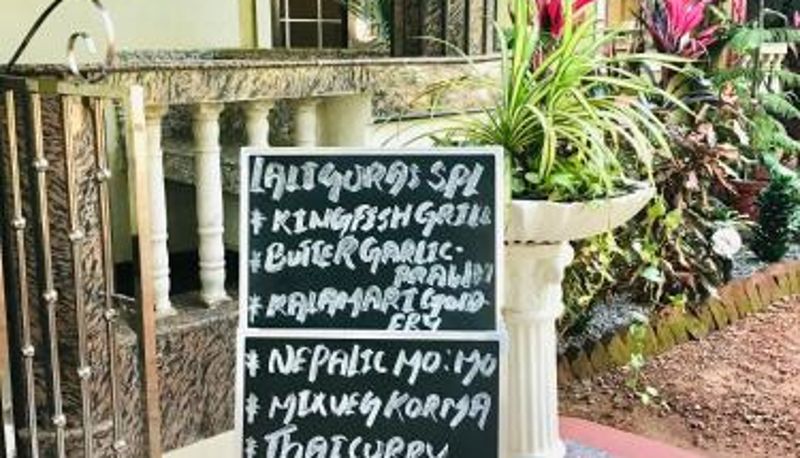 LALIGURAS SPL
* KINGFISH GRILL
* BUTTER GARLIC-
PRAWN
* KALAMARI GOLD
FRY
* NEPALIC MO:MO
* MIXVEG KORMA
* THAI CURRY